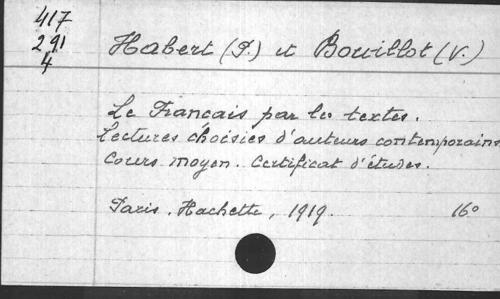 417
291
4
Habert (J.) et Bouillot (V.)
Le Francais par les textes.
Lectures choisies d'auteurs contemporains
Cours moyen. Certificat d'études.
Paris. Hachette, 1919. 16°